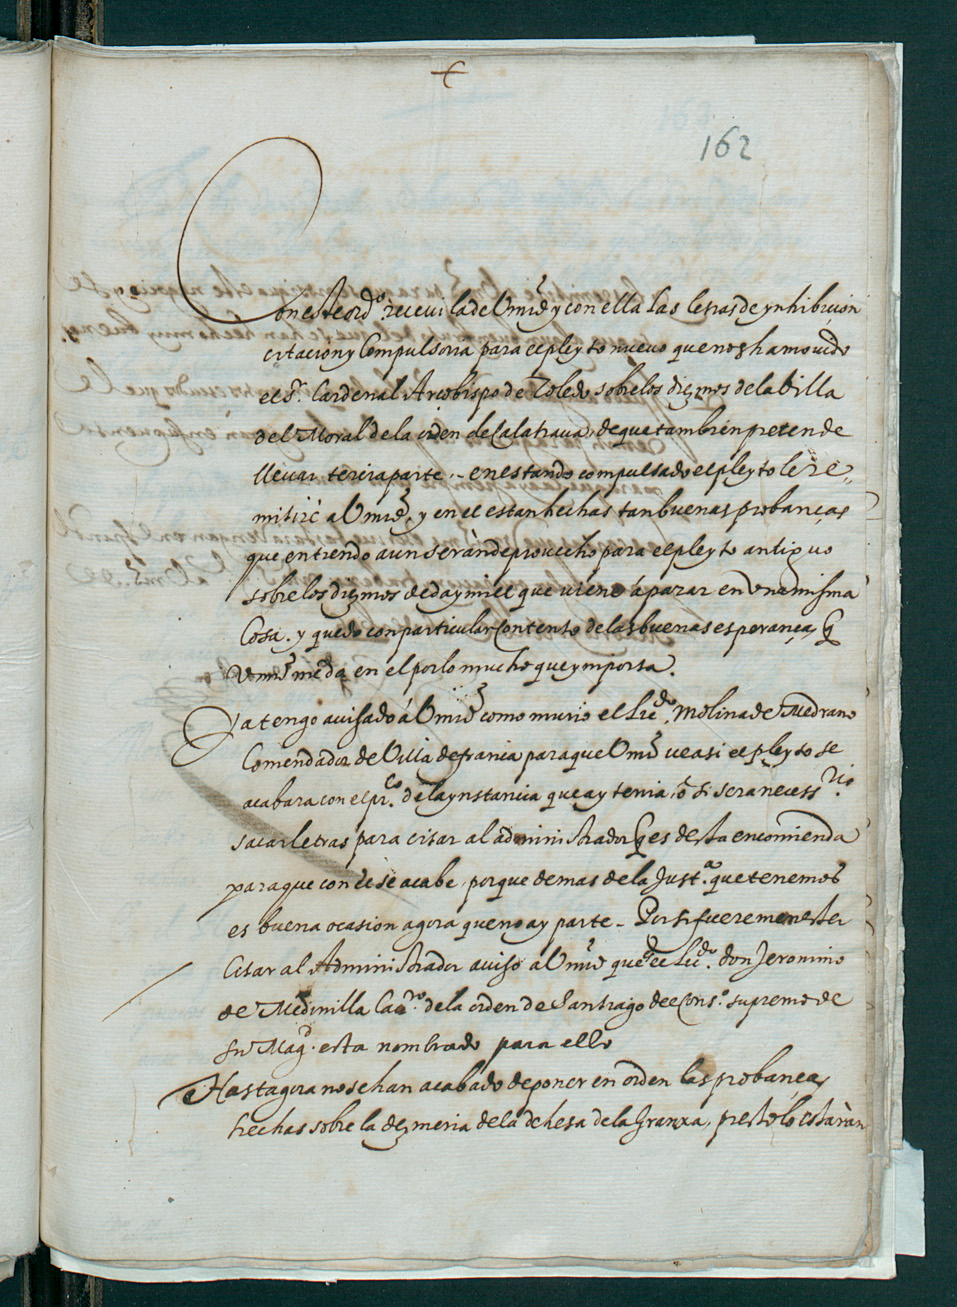 +
162
Con este ordº receui la de Vmd y con ella las letras de ynhibicion
citacion y Compulsoria para el pleyto nueuo que nos ha mouido
el Sr. Cardenal Arçobispo de Toledo sobre los diezmos de la Villa
del Moral de la orden de Calatraua, de que tambien pretende
lleuar tercira parte. en estando compulsado el pleyto le re-
mitiré a Vmd, y en el estan hechas tan buenas probanças
que entiendo aun serán de prouecho para el pleyto antiguo
sobre los diezmos de daymiel que uiene á parar en Vna misma
Cosa. y quedo con particular Contento de las buenas esperanças q
Vmd me da en el por lo mucho que ymporta.
Ya tengo auisado á Vmd como murio el Licdo. Molina de Medrano
Comendador de Villa franca para que Vmd uea si el pleyto se
acabara con el prco. de la ynstancia que ay tenia, o si sera necessrio.
sacar letras para citar al administrador q es desta encomienda
para que con el se acabe, porque demas de la Justa. que tenemos
es buena ocasion agora que no ay parte. Por si fuere menester
Citar al Administrador auiso a Vmd que el Licdo. don Jeronimo
de Medinilla Caro. de la orden de Santiago del Conso. supremo de
su Magd. esta nombrado para ello
Hastagora no se han acabado de poner en orden las probanças
hechas sobre la dezmeria de la dehesa de la Granxa, presto lo estaràn